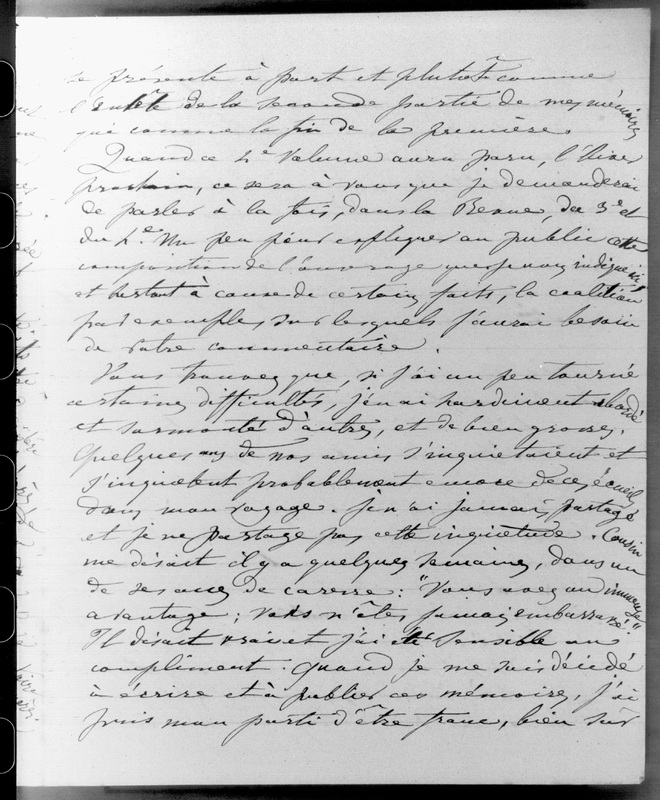 se présente à part et plutot comme
l'entête de la seconde partie de mes mémoires
que comme la fin de la première.
Quand ce 4e volume aura paru, l'hiver
prochain, ce sera à vous que je demanderai
de parler à la fois, dans la Revue, du 3e et
du 4e. Un peu pour expliquer au public cette
composition de l'ouvrage que je vous indique ici,
et surtout à cause de certains faits, la coalition
par exemple, sur lesquels j'aurai besoin
de votre commentaire.
Vous trouvez que, si j'ai un peu tourné
certaines difficultés, j'en ai hardiment abordé
et surmonté d'autres, et de bien grosses.
Quelques uns de nos amis s'inquiétaient et
s'inquiètent probablement encore de ces écueils
dans mon voyage. Je n'ai jamais partagé
et je ne partage pas cette inquiétude. Cousin
me disait il y a quelques semaines, dans un
de ses accès de caresse : "Vous avez un immense
avantage ; vous n'êtes jamais embarrassé."
Il disait vrai et j'ai été sensible au
compliment. Quand je me suis décidé
à écrire et à publier ces mémoires, j'ai
pris mon parti d'être franc, bien sûr